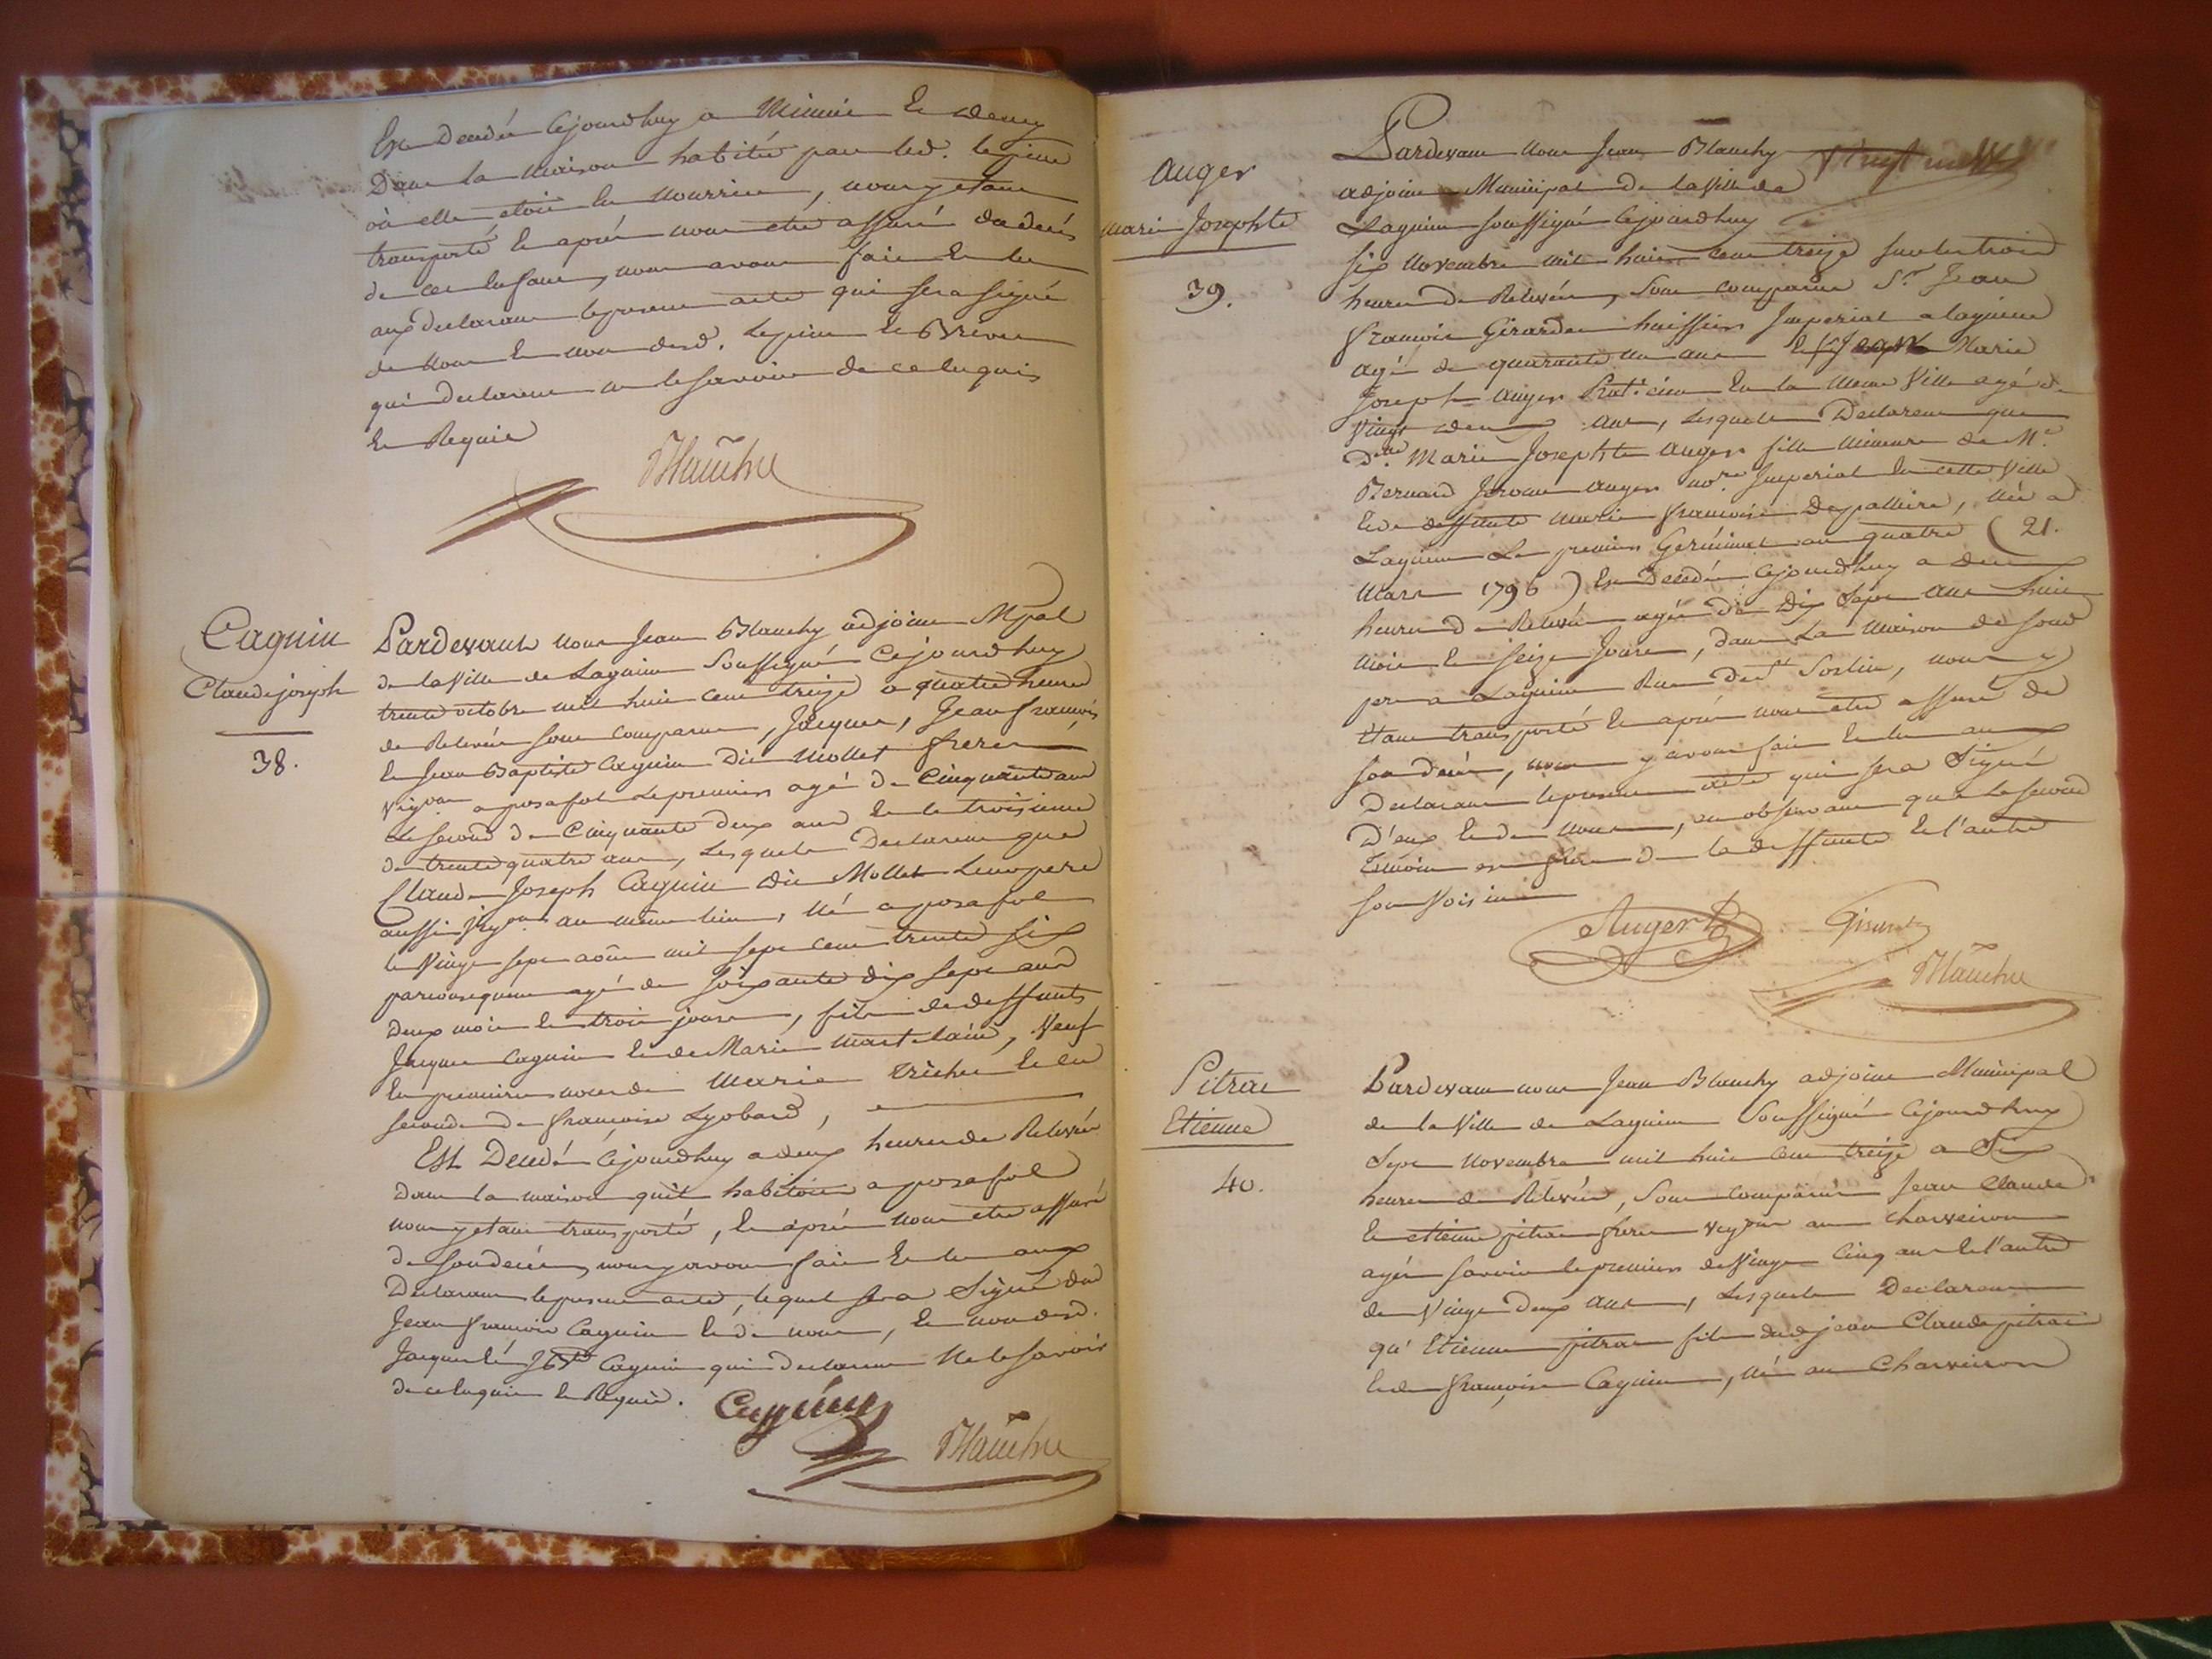 Est Decedée Cejourdhuy a Minuit Et demy
Dans la Maison habitée par led. Lepine
où elle etoit En Nourrice, nous y etant
transporté Et après nous etre assuré du decès
de cet Enfant, nous avons fait Et lu
aux declarants le present acte qui sera signé
de Nous Et non desd. Lepine Et
qui declarent ne le savoir de ce Enquis
Et Requis
Blanchy
Caguin
Claude joseph
38.
Pardevant nous Jean Blanchy adjoint Mpal
de la Ville de Lagnieu Soussigné Cejourdhuy
trente octobre mil huit cent treize a quatre heures
de Relevée sont comparus, Jacques, Jean François
Et Jean Baptiste Caguin Dit Mollet freres
Vigons a posafol Le premier agé de Cinquante ans
Le second de Cinquante deux ans Et le troisieme
de trente quatre ans, Lesquels Declarent que
Claude Joseph Caguin dit Mollet Leur pere
aussi Vigon au même lieu, Né a posafol
le Vingt sept août mil sept cent trente six
par consequent agé de soixante dix sept ans
deux mois Et trois jours, fils de deffunts
Jacques Caguin Et de Marie Martelain, Veuf
En premieres noces de Marie Triché Et en
secondes de Françoise Lyobard,
Est Decedé Cejourdhuy a deux heures de Relevée
dans la maison quil habitoit a posafol
nous y etant transporté, Et après nous etre assuré
de son decès, nous y avons fait Et lu aux
Declarants le present acte, lequel sera Signé dud
Jean François Caguin Et de nous, Et non desd.
Jacques Et J Bte Caguin qui declarent Ne le savoir
de ce Enquis Et Requis.
Caguin
Blanchy
Auger
Marie Josephte
39.
Pardevant Nous Jean Blanchy
adjoint Municipal de la Ville de
Lagnieu soussigné Cejourdhuy
six Novembre mil huit cent treize sur les trois
heures de Relevée, Sont comparus Sr. Jean
François Girardet huissier Imperial a lagnieu
agé de quarante un ans Et Marie
Joseph Auger Praticien En la Meme Ville agé de
Vingt deux ans, Lesquels Declarent que
Dlle. Marie Josephte Auger fille Mineure de Me.
Bernard Auger nore. Imperial En cette Ville
Et de deffunte Marie Françoise Depalliere, Née a
Lagnieu Le premier Germinal an quatre (21.
Mars 1796) Est Decedée Cejourdhuy a deux
heures de Relevée agée de Dix Sept ans huit
Mois Et seize Jours, dans La Maison de son
pere a Lagnieu Rue De St Sorlin, nous y
étant transporté Et après nous etre assuré de
son decès, nous y avons fait Et lu aux
Declarants le present acte qui sera Signé
D'eux Et de Nous, en observant que le second
Temoin est frere de la deffunte Et l'autre
son Voisin
Auger
Girardet
Blanchy
Pitrat
Etienne
40.
Pardevant nous Jean Blanchy adjoint Municipal
de la Ville de Lagnieu Soussigné Cejourdhuy
Sept Novembre mil huit Cent treize a Six
heures de Relevée, Sont comparus Jean Claude
Et etienne pitrat freres Vigons au Charveiron
agés savoir le premier de Vingt Cinq ans Et l'autre
de Vingt Deux ans, Lesquels Declarent
qu'Etienne pitrat fils dud jean Claude pitrat
Et de Françoise Caguin, Né au Charveiron